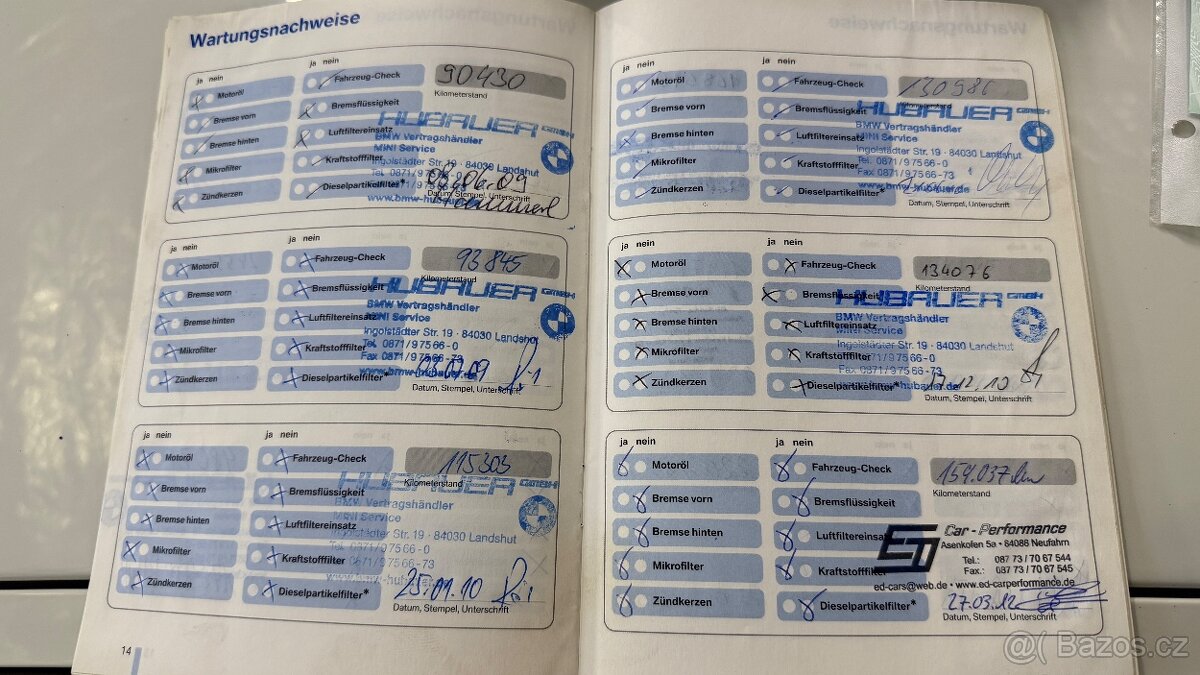 Wartungsnachweise
ja nein
Motoröl
Bremse vorn
Bremse hinten
Mikrofilter
Zündkerzen
ja nein
Fahrzeug-Check
Bremsflüssigkeit
Luftfiltereinsatz
Kraftstofffilter
Dieselpartikelfilter*
90430
Kilometerstand
HUBAUER GMBH
BMW Vertragshändler
MINI Service
Ingolstädter Str. 19 · 84030 Landshut
Tel. 0871/97566-0
www.bmw-hubauer.de
Datum, Stempel, Unterschrift
ja nein
Motoröl
Bremse vorn
Bremse hinten
Mikrofilter
Zündkerzen
ja nein
Fahrzeug-Check
Bremsflüssigkeit
Luftfiltereinsatz
Kraftstofffilter
Dieselpartikelfilter*
93845
Kilometerstand
HUBAUER GMBH
BMW Vertragshändler
MINI Service
Ingolstädter Str. 19 · 84030 Landshut
Tel. 0871/97566-0
Fax 0871/97566-73
www.bmw-hubauer.de
Datum, Stempel, Unterschrift
ja nein
Motoröl
Bremse vorn
Bremse hinten
Mikrofilter
Zündkerzen
ja nein
Fahrzeug-Check
Bremsflüssigkeit
Luftfiltereinsatz
Kraftstofffilter
Dieselpartikelfilter*
115303
Kilometerstand
HUBAUER GMBH
BMW Vertragshändler
MINI Service
Ingolstädter Str. 19 · 84030 Landshut
Tel. 0871/97566-0
Datum, Stempel, Unterschrift
14
ja nein
Motoröl
Bremse vorn
Bremse hinten
Mikrofilter
Zündkerzen
ja nein
Fahrzeug-Check
Bremsflüssigkeit
Luftfiltereinsatz
Kraftstofffilter
Dieselpartikelfilter*
130986
HUBAUER GMBH
BMW Vertragshändler
MINI Service
Ingolstädter Str. 19 · 84030 Landshut
Tel. 0871/97566-0
Fax 0871/97566-73
www.bmw-hubauer.de
Datum, Stempel, Unterschrift
ja nein
Motoröl
Bremse vorn
Bremse hinten
Mikrofilter
Zündkerzen
ja nein
Fahrzeug-Check
Bremsflüssigkeit
Luftfiltereinsatz
Kraftstofffilter
Dieselpartikelfilter*
134076
Kilometerstand
HUBAUER GMBH
BMW Vertragshändler
MINI Service
Ingolstädter Str. 19 · 84030 Landshut
Tel. 0871/97566-0
Fax 0871/97566-73
Datum, Stempel, Unterschrift
ja nein
Motoröl
Bremse vorn
Bremse hinten
Mikrofilter
Zündkerzen
ja nein
Fahrzeug-Check
Bremsflüssigkeit
Luftfiltereinsatz
Kraftstofffilter
Dieselpartikelfilter*
154.037 km
Kilometerstand
Car - Performance
Asenkofen 5a • 84088 Neufahrn
Tel.: 087 73 / 70 67 544
Fax.: 087 73 / 70 67 545
ed-cars@web.de • www.ed-carperformance.de
27.03.12
Datum, Stempel, Unterschrift
Bazos.cz